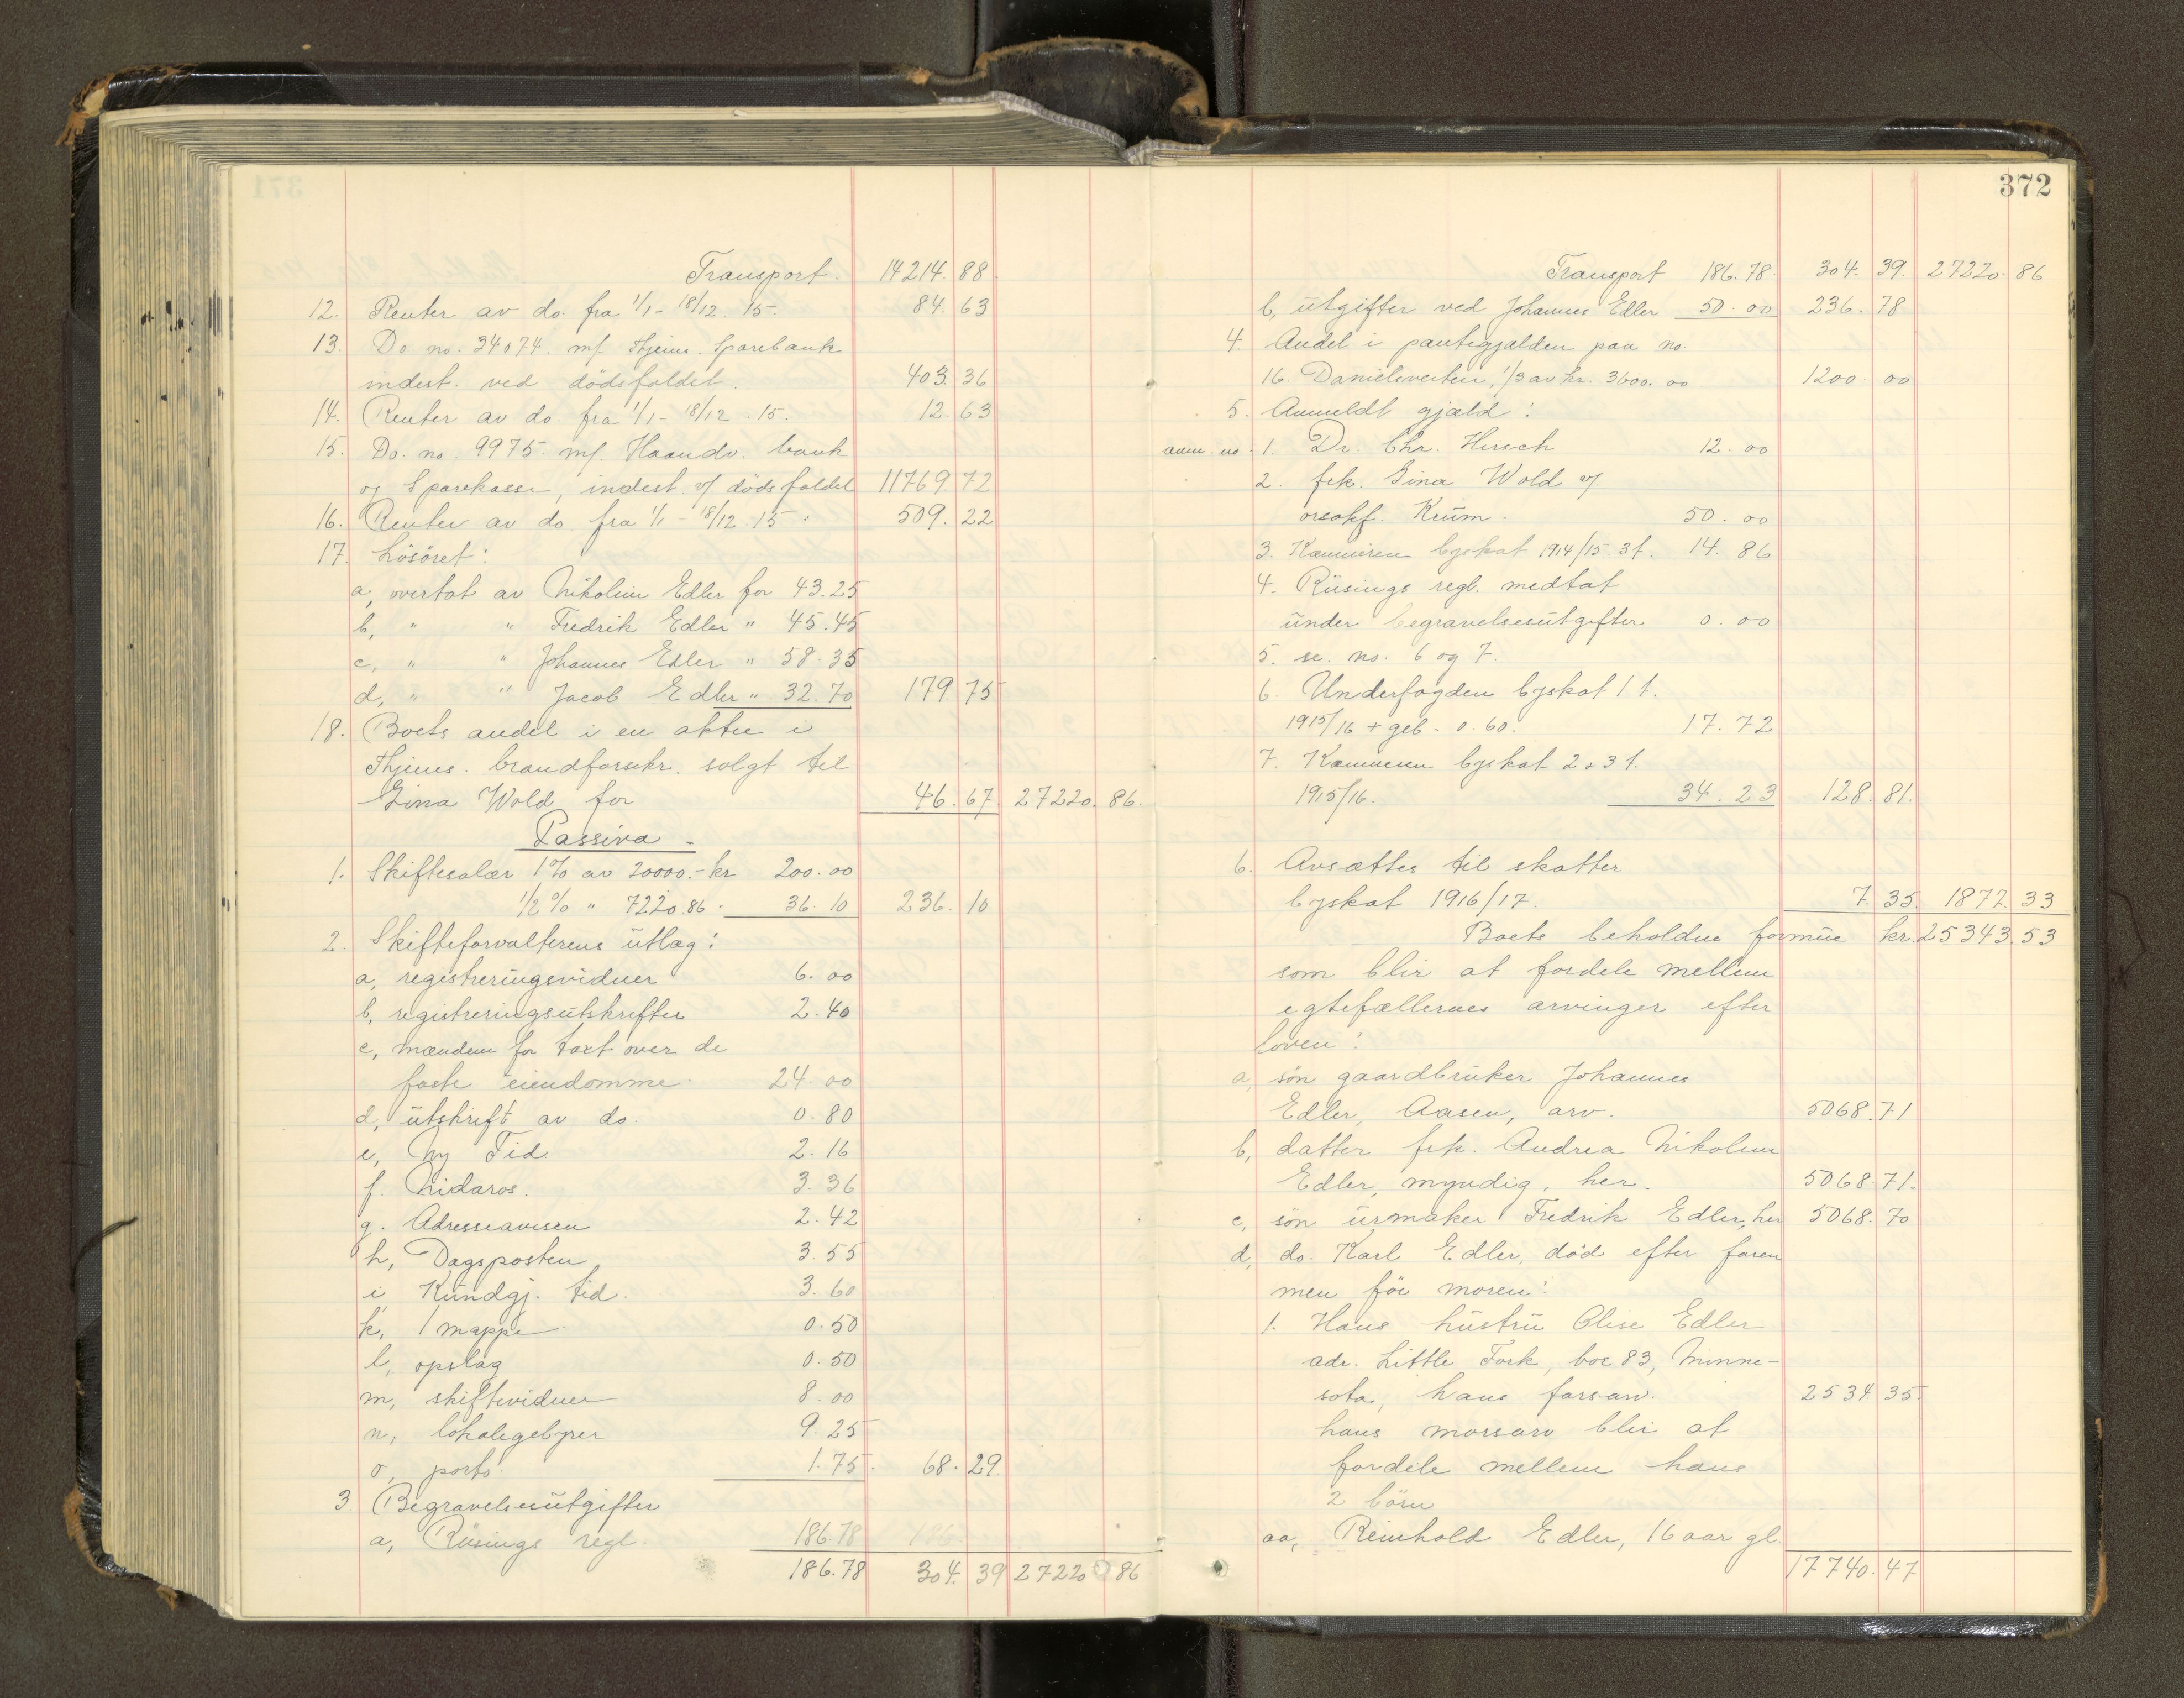 Transport. 14214. 88
12. Renter av do. fra 1/1 - 18/12. 15. 84. 63
13. Do no. 34074. mf. Thjems. Sparebank
indest. ved dödsfaldet. 403. 36
14. Renter av do fra 1/1 - 18/12. 15. 12. 63
15. Do. no. 9975 mf. Haandv. bank
og Sparekasse, indest. v/ dödsfaldet 11769 72
16. Renter av do fra 1/1 - 18/12. 15. 509. 22
17. Lösöret:
a, overtat av Nikoline Edler for 43.25
b, " " Fredrik Edler " 45.45
c, " " Johannes Edler " 58.35
d, " " Jacob Edler " 32.70 179 75
18. Boets andel i en aktie i
Thjems. brandforsikr. solgt til
Gina Wold for 46. 67. 27220. 86.
Passiva
1. Skiftesalær 1% av 20000.- kr 200.00
1/2 % " 7220.86 - 36.10 236. 10
2. Skifteforvalterens utlæg:
a, registreringsvidner 6.00
b, registreringsutskrifter 2.40
c, mændene for taxt over de
faste eiendomme 24.00
d, utskrift av do. 0.80
e, Ny Tid 2.16
f. Nidaros. 3.36
g. Adresseavisen 2.42
h, Dagsposten 3.55
i, Kundgj. tid. 3.60
k, 1 mappe 0.50
l, opslag 0.50
m, skiftevidner 8.00
n, lokalegebyrer 9.25
o, porto 1.75 68. 29.
3. Begravelsesutgifter
a, Rüsings regl. 186.78
186.78 304. 39 27220 86
372
Transport 186.78 304. 39. 27220. 86
b, utgifter ved Johannes Edler 50.00 236. 78
4. Andel i pantegjælden paa no.
16. Danielsveiten, 1/3 av kr. 3600.00 1200. 00
5. Anmeldt gjæld:
anm. no. 1. Dr. Chr. Hirsch 12.00
2. frk. Gina Wold v/
orsakf. Krüm. 50.00
3. Kæmneren byskat 1914/15. 3 t. 14. 86
4. Rüsings regl. medtat
under begravelsesutgifter 0.00
5. se. no. 6 og 7.
6. Underfogden byskat 1 t.
1915/16 + geb. 0.60. 17.72
7. Kæmneren byskat 2 & 3 t.
1915/16. 34.23 128. 81.
6. Avsættes til skatter
byskat 1916/17. 7. 35 1877. 33
Boets beholdne formue kr. 25343. 53
som blir at fordele mellem
egtefællernes arvinger efter
loven:
a, sön gaardbruker Johannes
Edler, Aasen, arv. 5068. 71
b, datter frk. Andrea Nikoline
Edler, myndig, her. 5068. 71.
c, sön urmaker Fredrik Edler, her 5068. 70
d, do. Karl Edler, död efter faren
men för moren:
1. Hans hustru Olise Edler
adr. Little Fork, box 83, Minne-
sota, hans farsarv. 2534. 35.
hans morsarv blir at
fordele mellem hans
2 börn
aa, Reinhold Edler, 16 aar gl.
17740. 47